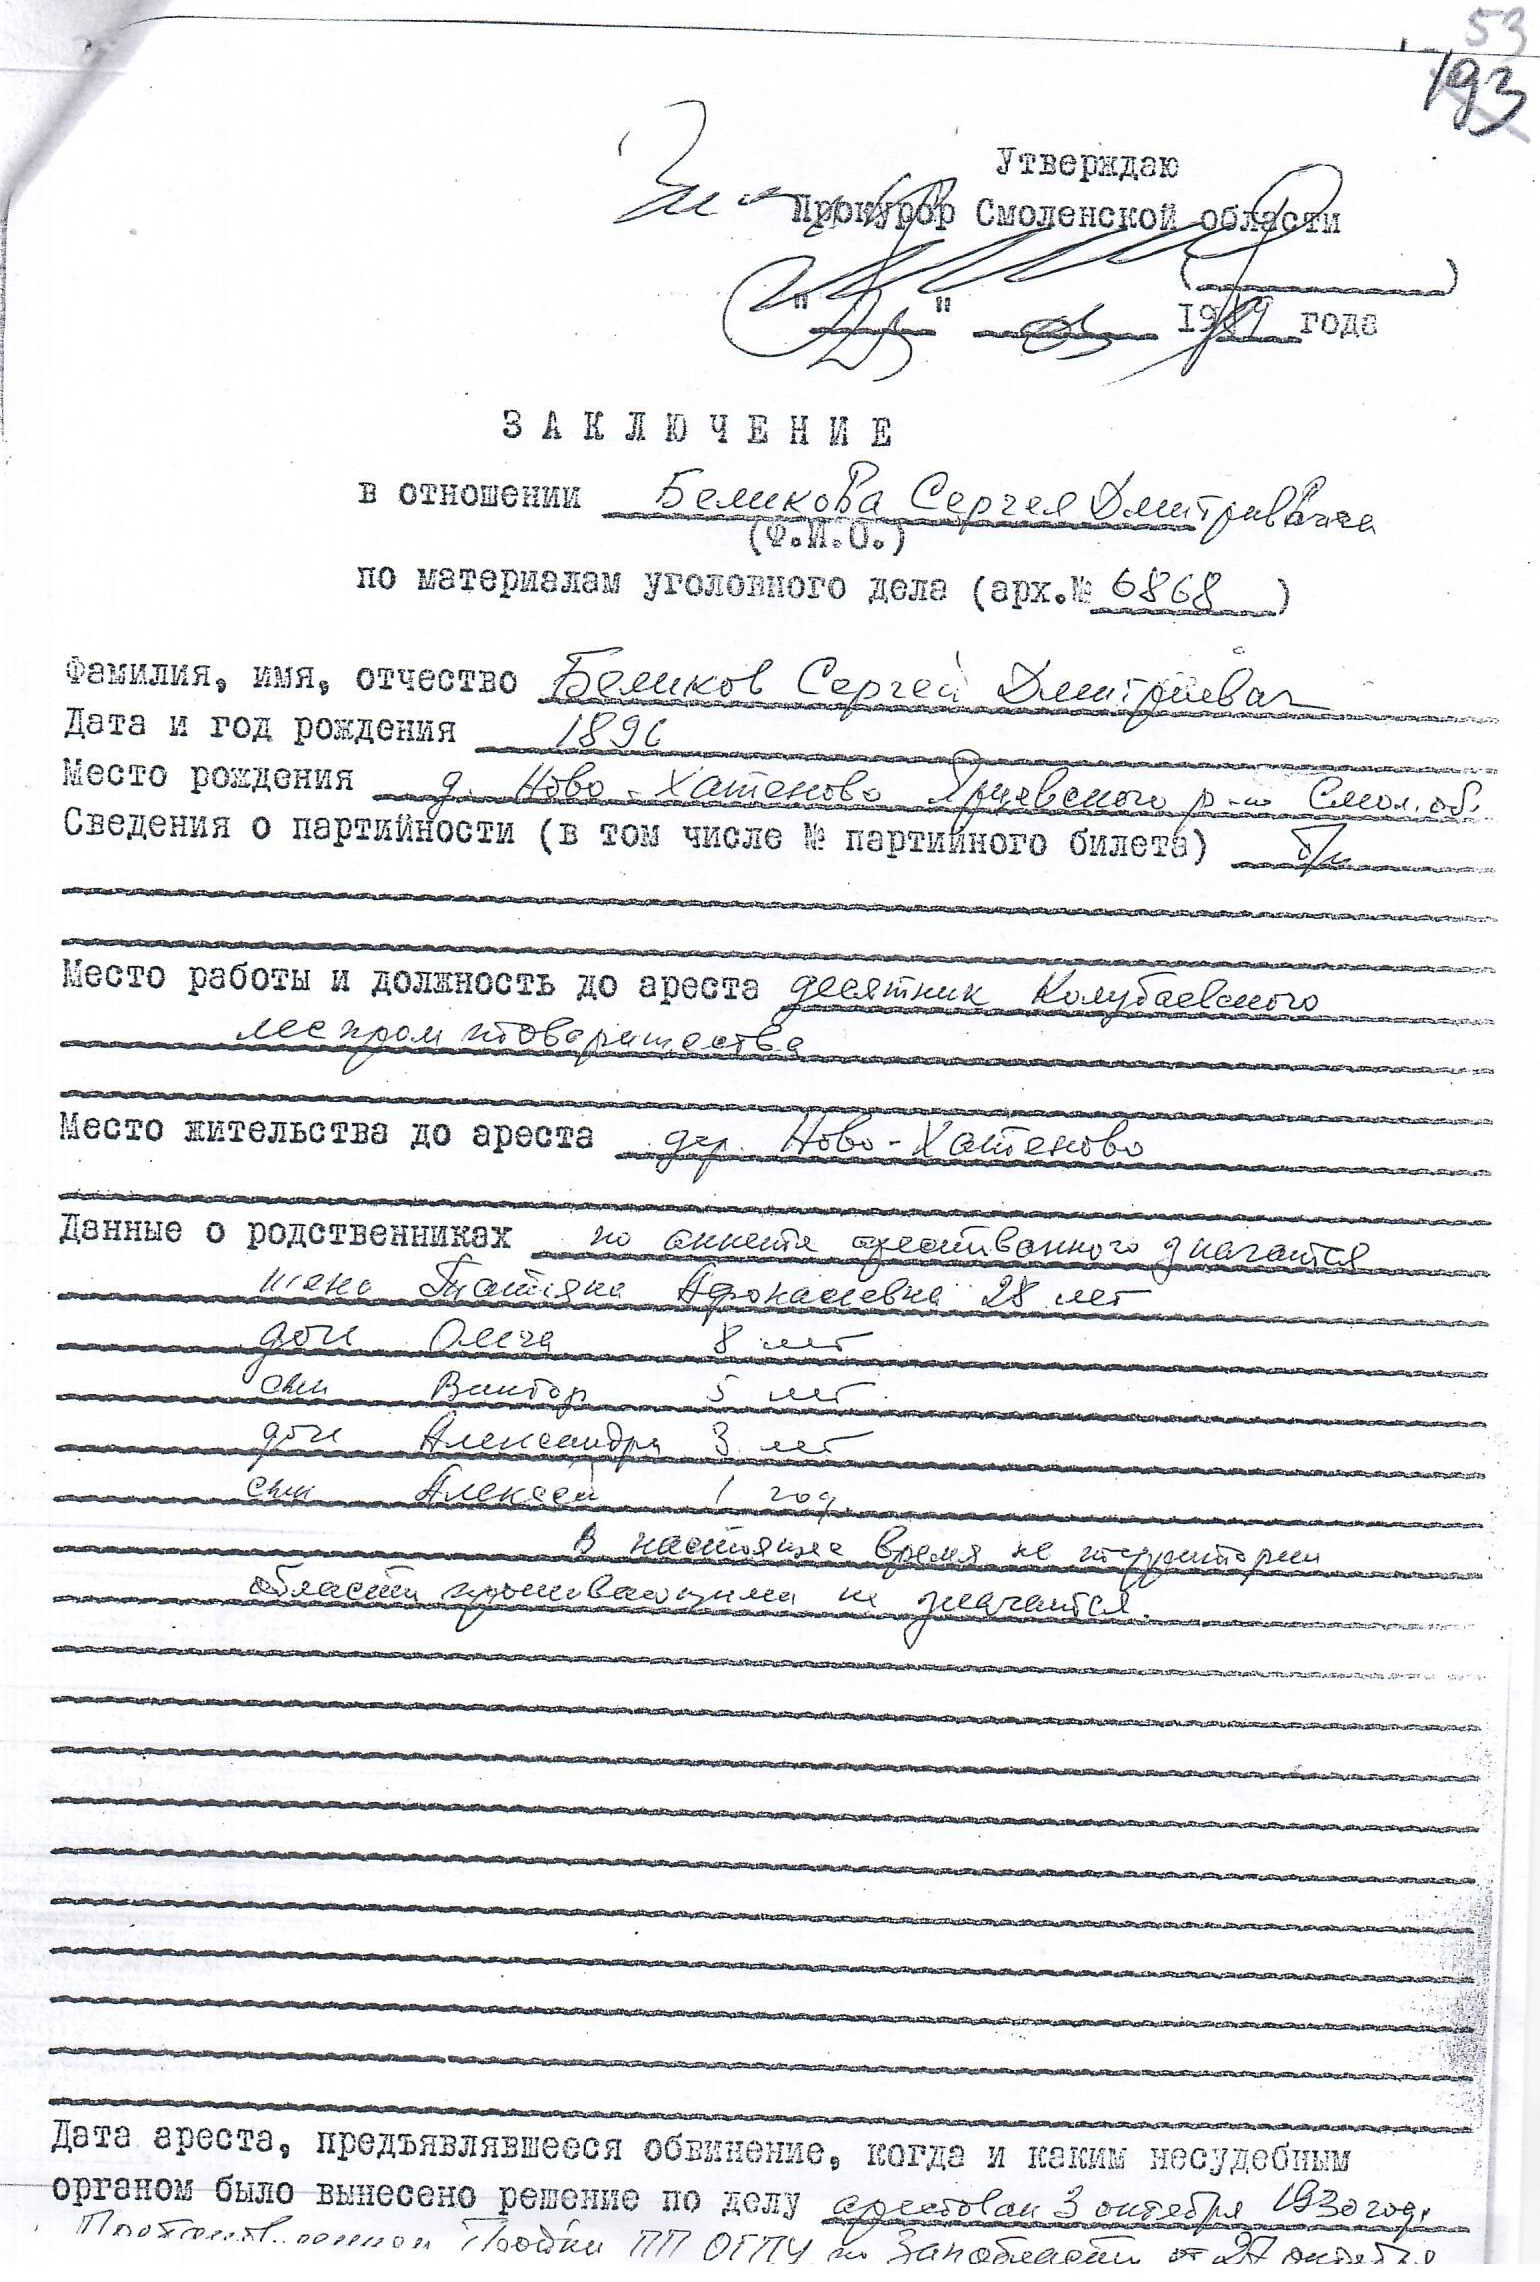 53
193
Утверждаю
Прокурор Смоленской области
( )
" " 03 1989 года
ЗАКЛЮЧЕНИЕ
в отношении Беликова Сергея Дмитриевича
(Ф.И.О.)
по материалам уголовного дела (арх.№ 6868 )
Фамилия, имя, отчество Беликов Сергей Дмитриевич
Дата и год рождения 1896
Место рождения д. Ново-Хатеново Ярцевского р-на Смол. об.
Сведения о партийности (в том числе № партийного билета) б/п
Место работы и должность до ареста десятник Колубаевского
леспромтоварищества
Место жительства до ареста дер. Ново-Хатеново
Данные о родственниках по анкете арестованного значатся
жена Татьяна Афонасьевна 28 лет
дочь Ольга 8 лет
сын Виктор 5 лет
дочь Александра 3 лет
сын Алексей 1 год.
В настоящее время на территории
области проживающими не значатся.
Дата ареста, предъявлявшееся обвинение, когда и каким несудебным
органом было вынесено решение по делу арестован 3 октября 1930 год.
Постановлением Тройки ПП ОГПУ по Запобласти от 27 октября